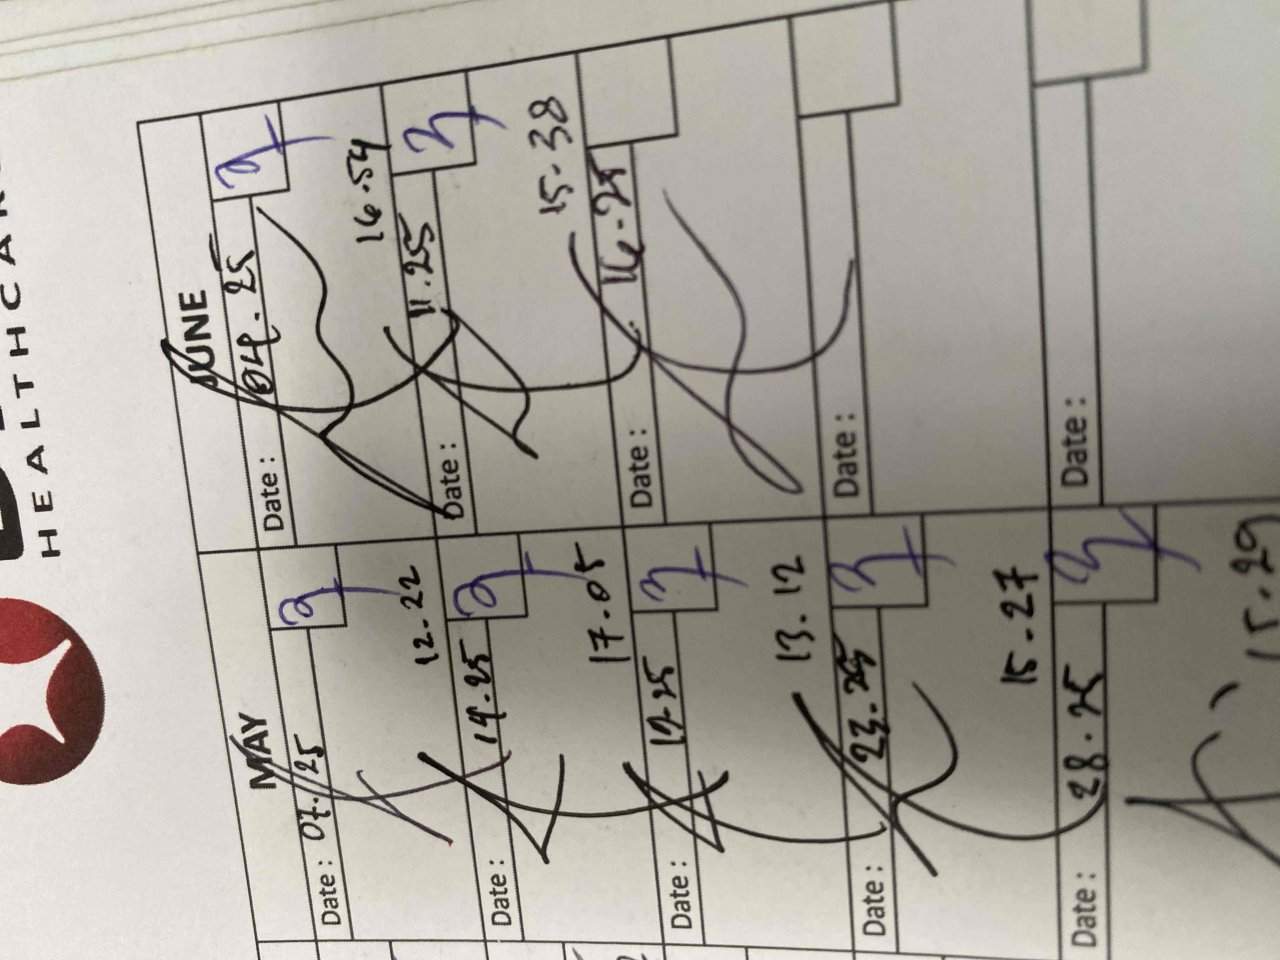 HEALTHCAR
MAY
Date : 07. 25
12.22
Date : 14.25
17.05
Date : 19.25
13.12
Date : 23.25
15-27
Date : 28.25
15.29
JUNE
Date : 04.25
16.54
Date : 11.25
15-38
Date : 16.25
Date :
Date :